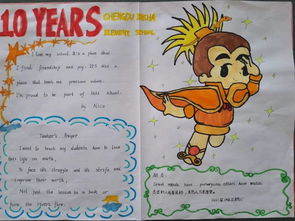 10 YEARS
CHENGDU JINSHA
ELEMENTARY SCHOOL
I love my school. It's a place that
I find friendship and joy. It's also a
place that teach me precious values.
I'm proud to be part of this school.
by Alice
Teacher's Prayer
I want to teach my students how to love
this life on earth,
To face its struggle and its strife and
improve their worth.
Not just the lesson in a book or
how the rivers flow,
Great minds have purpose, others have wishes.